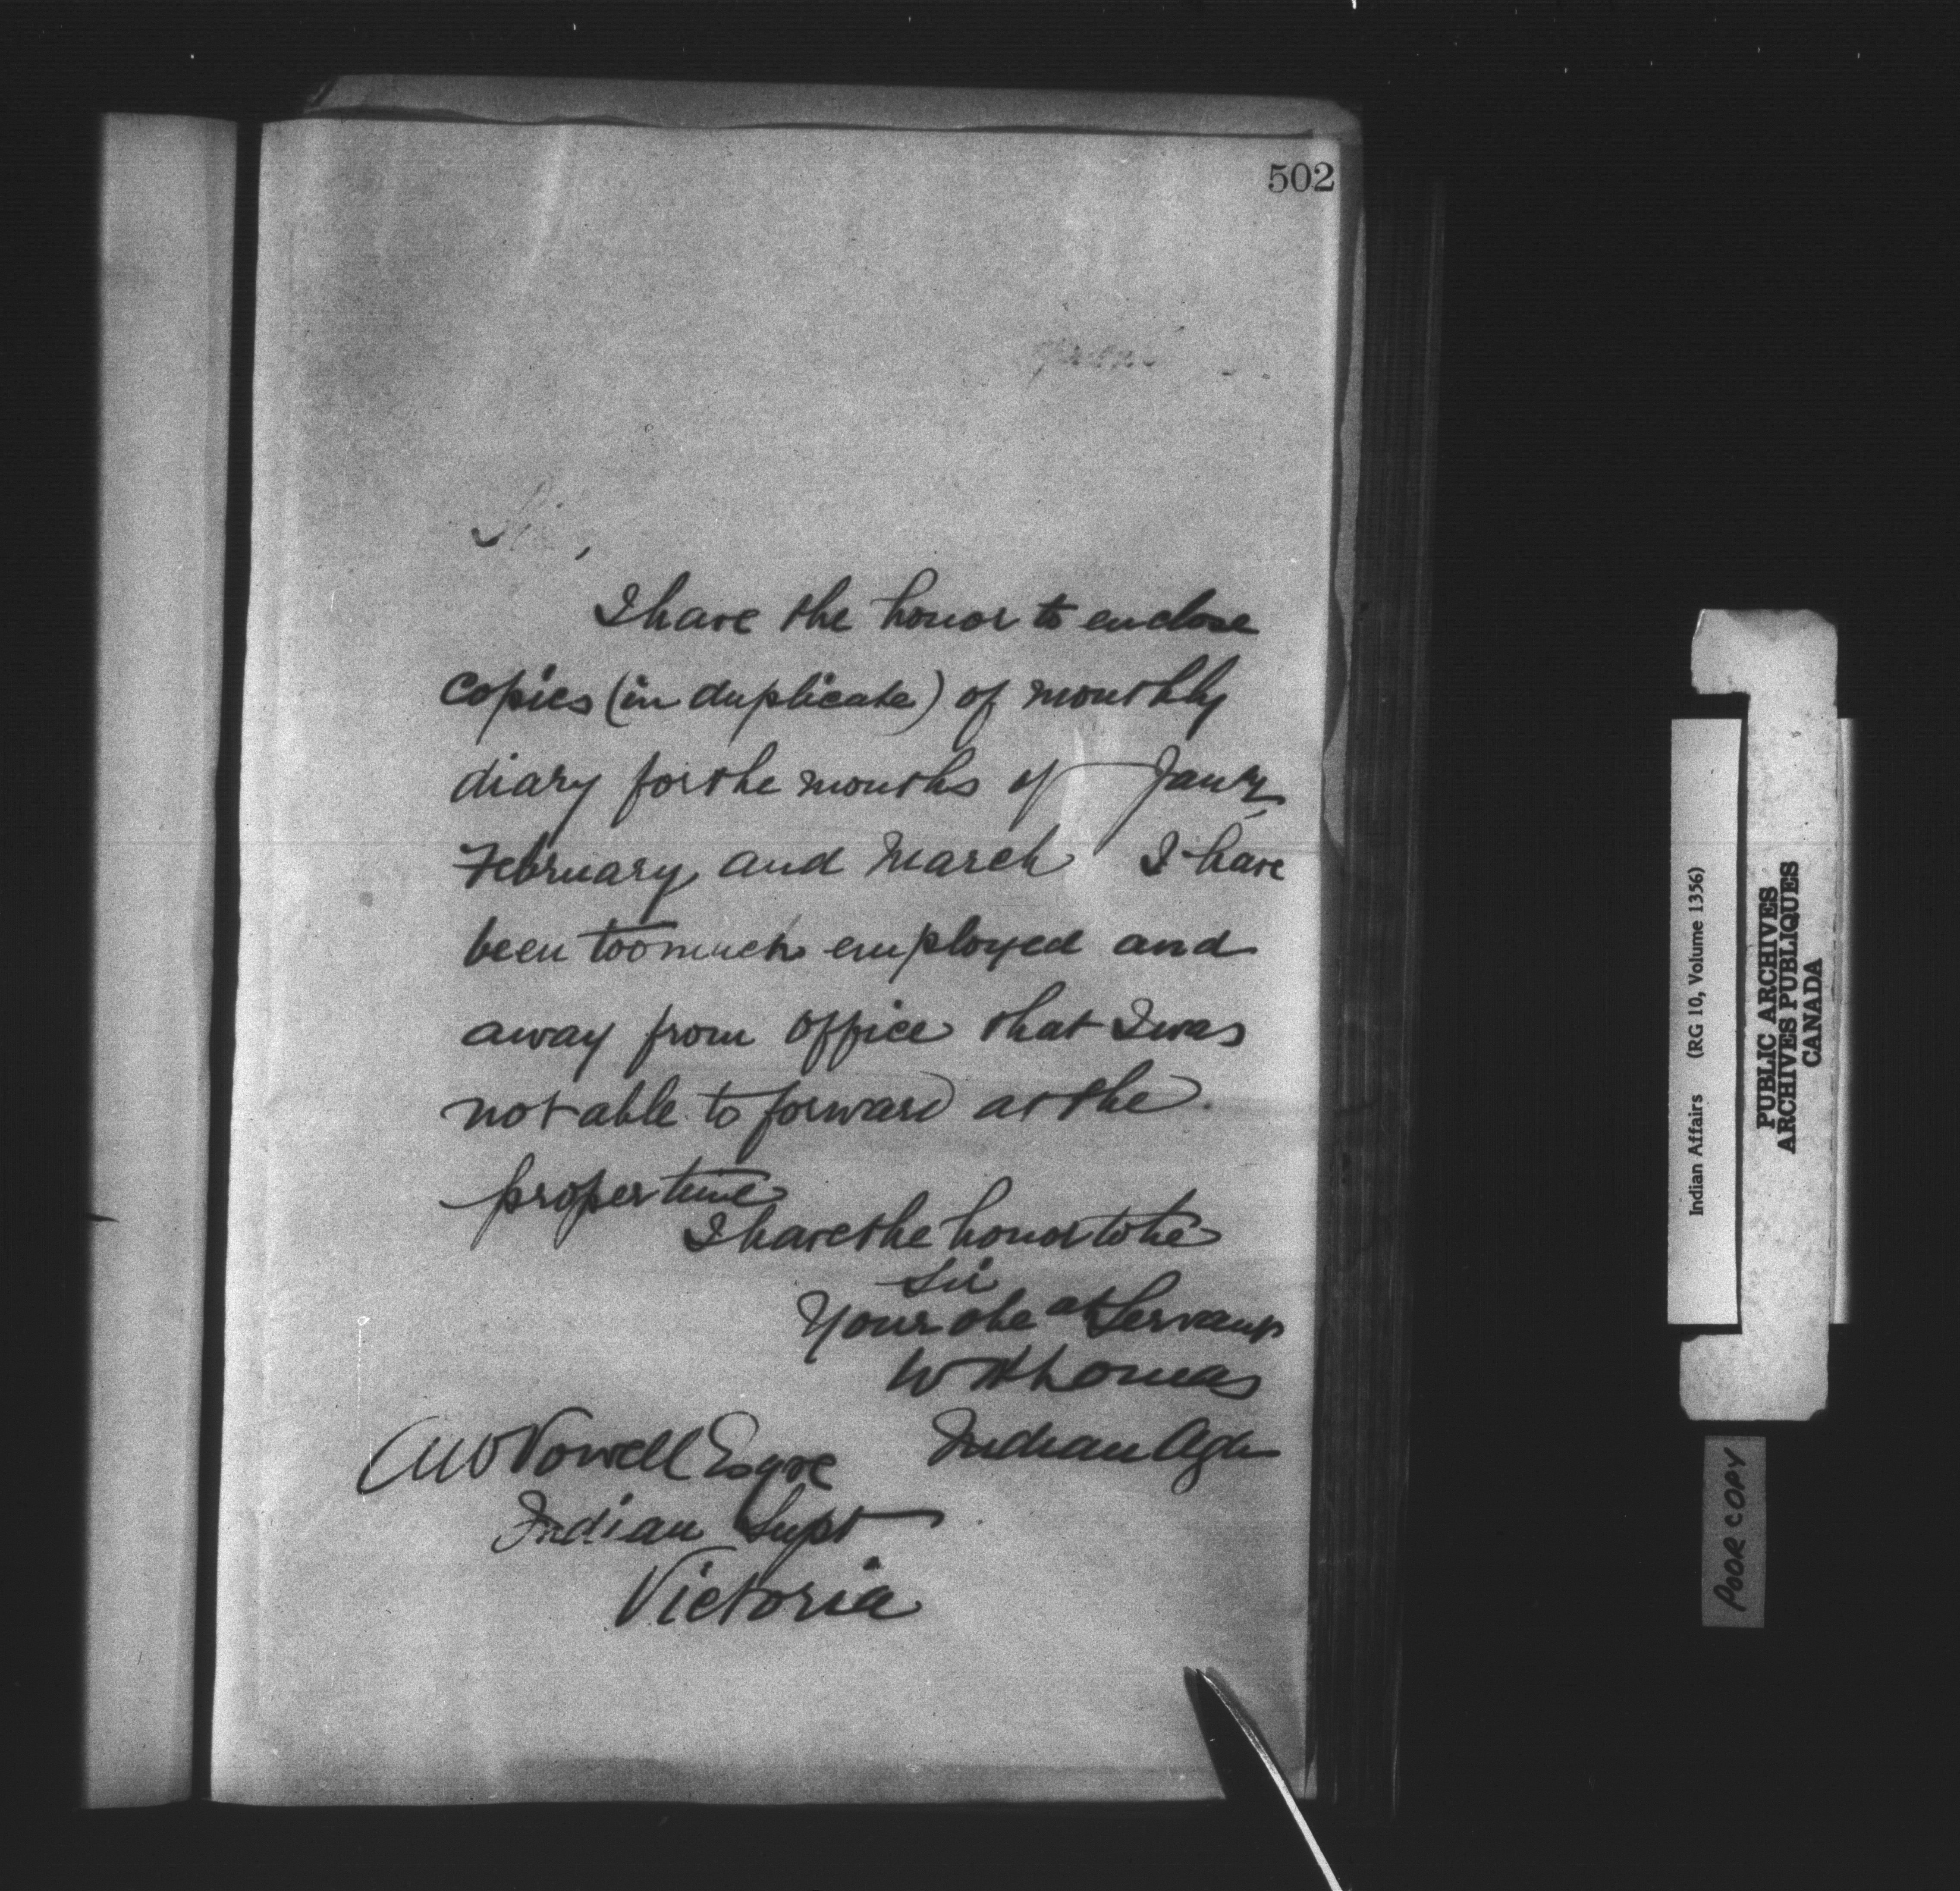 502
Sir,
I have the honor to enclose
copies (in duplicate) of monthly
diary for the months of Jan'y
February and March I have
been too much employed and
away from office that I was
not able to forward at the
proper time
I have the honor to be
Sir
Your obe at Servant
Indian Agt
A W Vowell Esqre
Indian Supt
Victoria
Indian Affairs (RG 10, Volume 1356)
PUBLIC ARCHIVES
ARCHIVES PUBLIQUES
CANADA
POOR COPY